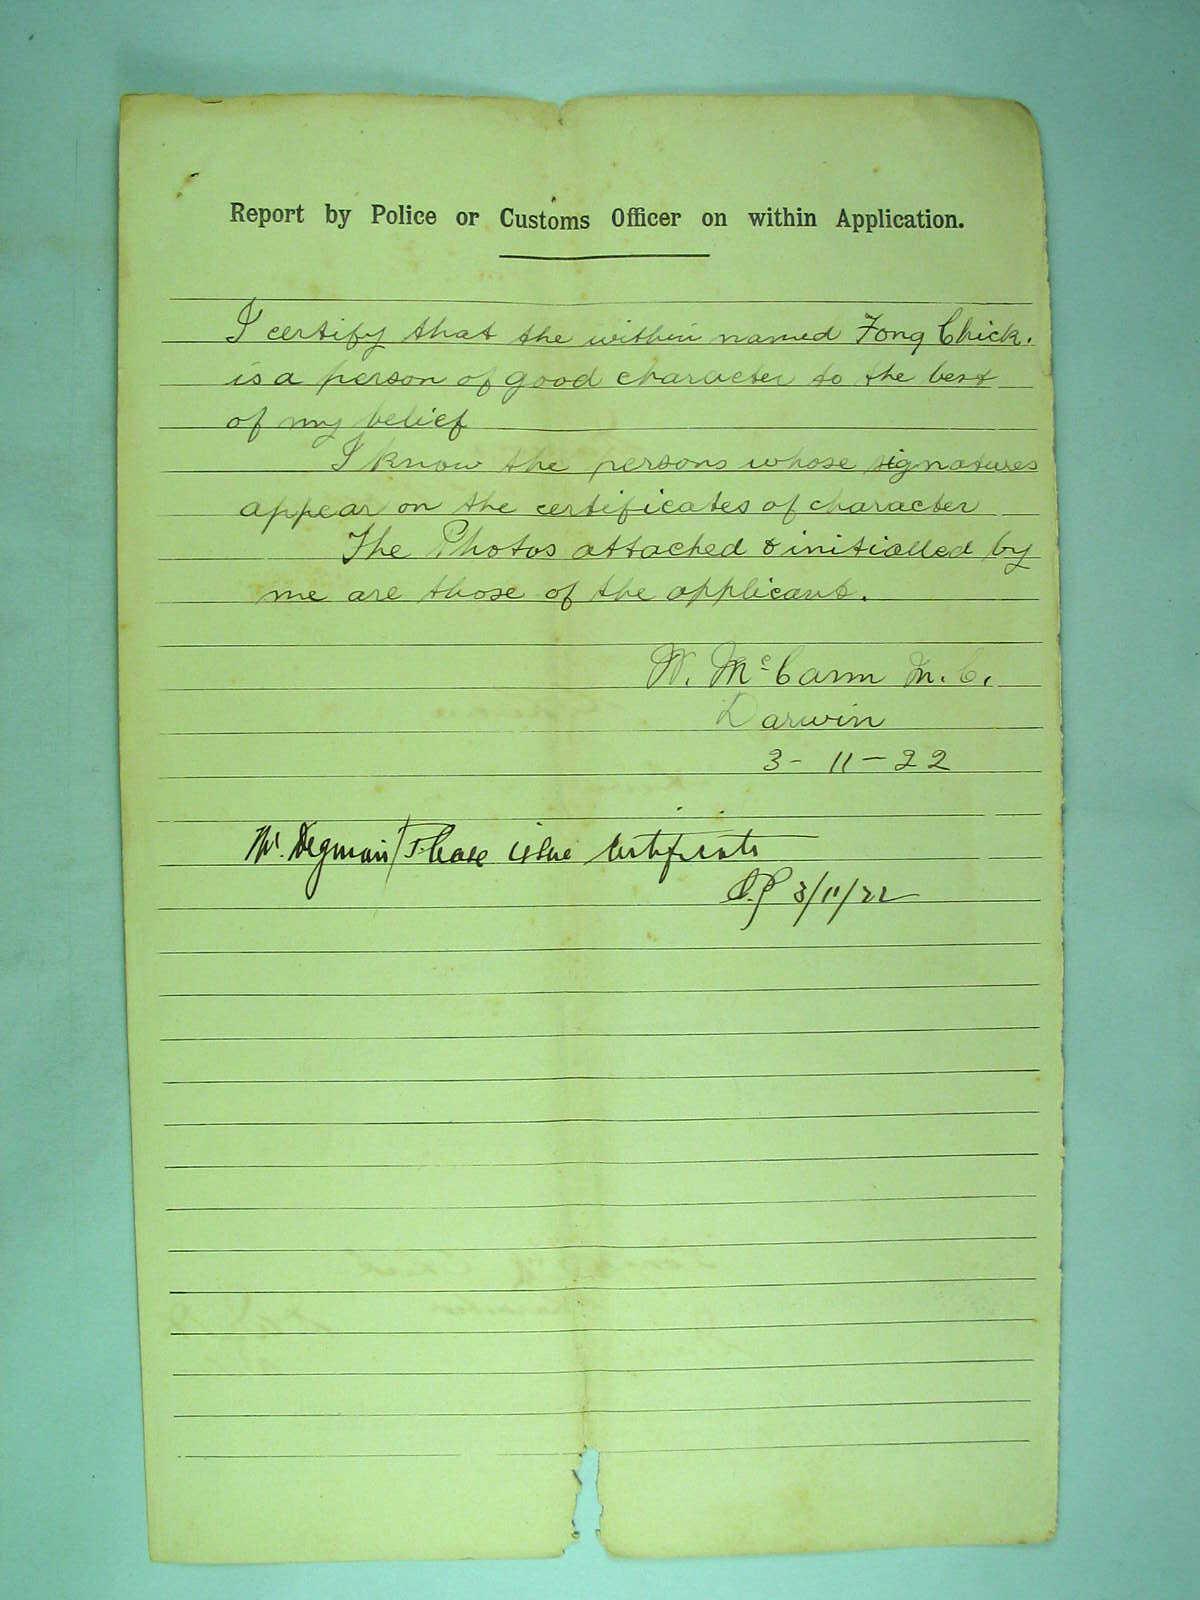 Report by Police or Customs Officer on within Application.
I certify that the within named Fong Chick.
is a person of good character to the best
of my belief
I know the persons whose signatures
appear on the certificates of character
The Photos attached & initialled by
me are those of the applicant.
W. McCann M.C.
Darwin
3-11-22
Mr. Degman Please issue Certificate
3/11/22